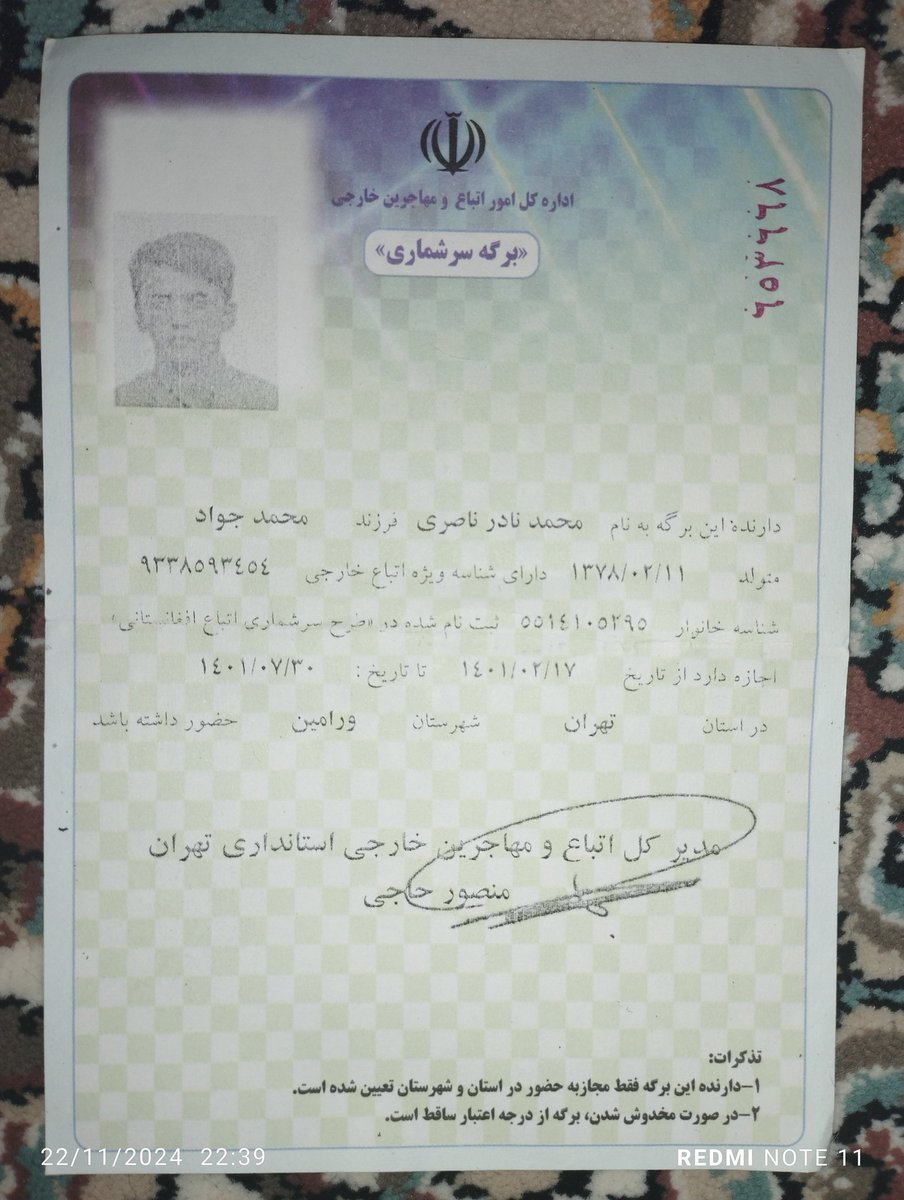 اداره کل امور اتباع و مهاجرین خارجی
«برگه سرشماری»
دارنده این برگه به نام محمد نادر ناصری فرزند محمد جواد
متولد ١٣٧٨/٠٢/١١ دارای شناسه ویژه اتباع خارجی ٩٣٣٨٥٩٣٤٥٤
شناسه خانوار ٥٥١٤١٠٥٢٩٥ ثبت نام شده در «طرح سرشماری اتباع افغانستانی»
اجازه دارد از تاریخ ١٤٠١/٠٢/١٧ تا تاریخ: ١٤٠١/٠٧/٣٠
در استان تهران شهرستان ورامین حضور داشته باشد
مدیر کل اتباع و مهاجرین خارجی استانداری تهران
منصور حاجی
تذکرات:
۱-دارنده این برگه فقط مجاز به حضور در استان و شهرستان تعیین شده است.
۲-در صورت مخدوش شدن، برگه از درجه اعتبار ساقط است.
22/11/2024 22:39
REDMI NOTE 11